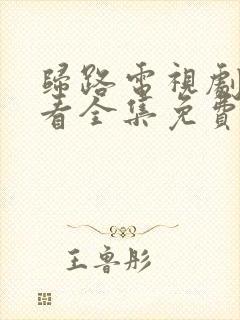 歸路電視劇
看全集免費
王魯彤